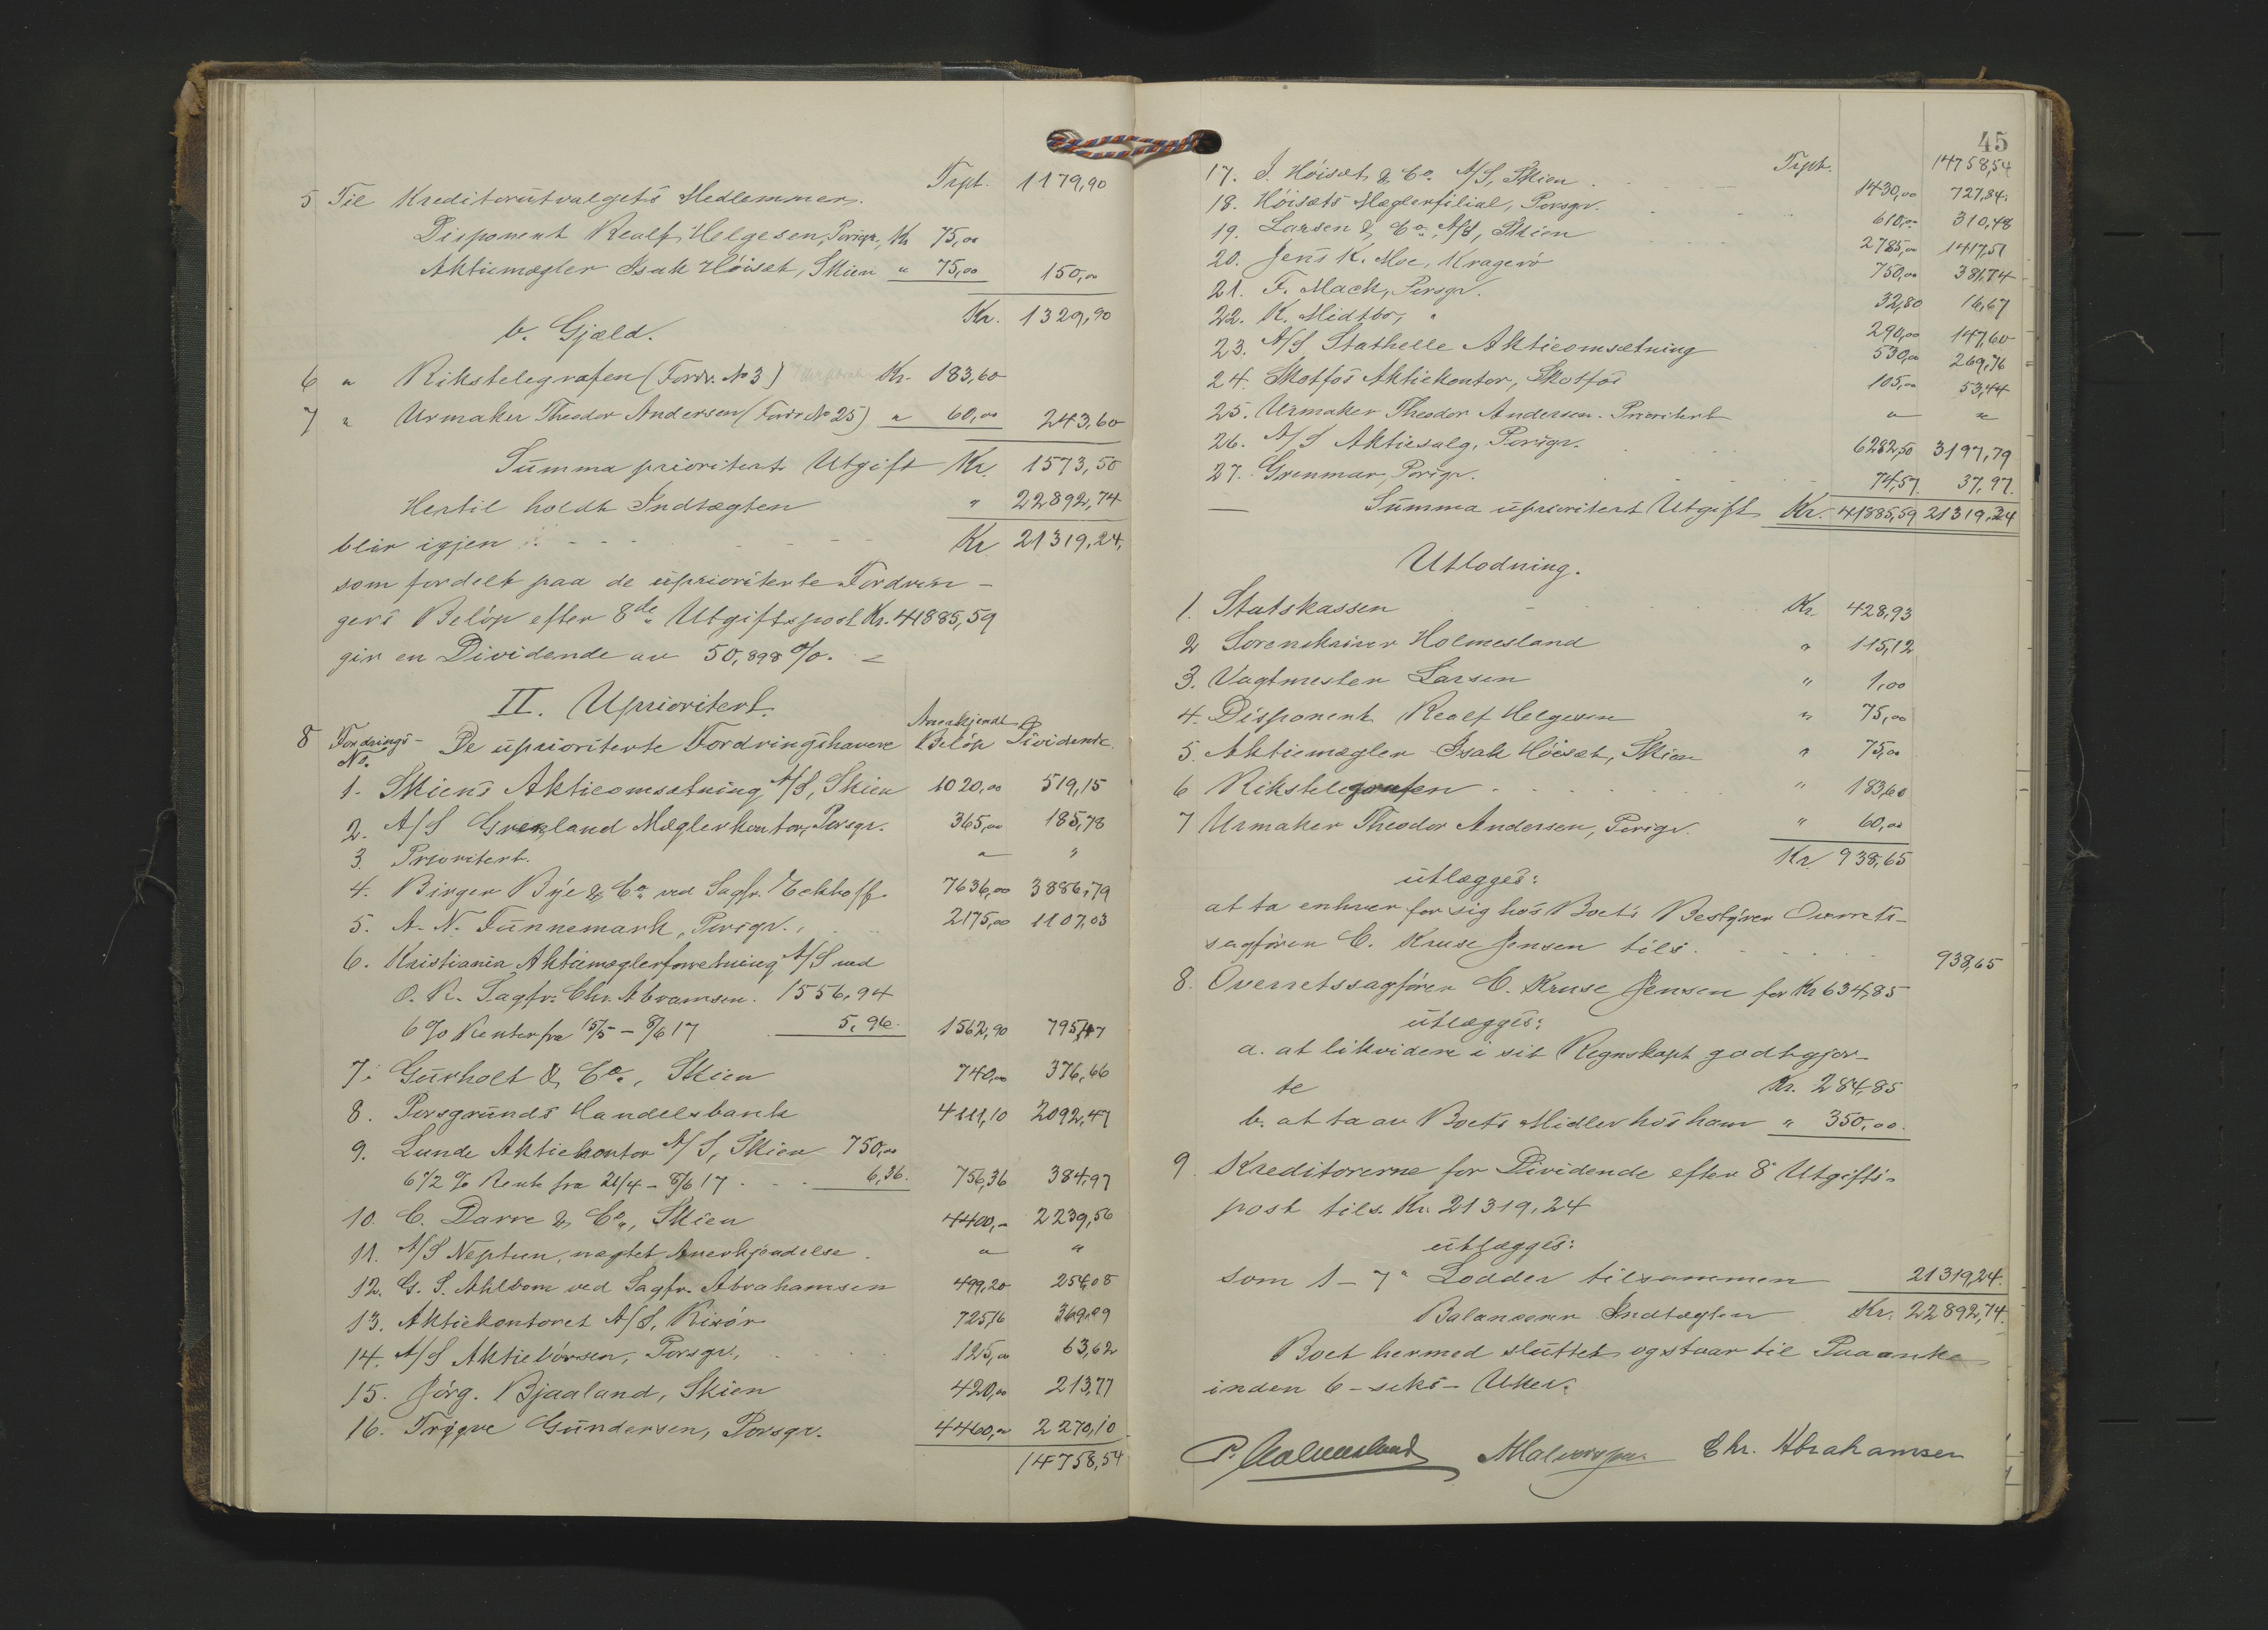 Trpt. 1179,90
5 Til Kreditorutvalgets Medlemmer.
Disponent Realf Helgesen, Porsgr., Kr 75,00
Aktiemægler Isak Höisæt, Skien " 75,00 150,00
Kr. 1329,90
b. Gjæld.
6 " Rikstelegrafen (Fordr. No 3) Kr. 183,60
7 " Urmaker Theodor Andersen (Fordr No 25) " 60,00 243,60
Summa prioritert Utgift Kr. 1573,50
Hertil holdt Indtægten " 22892,74
blir igjen Kr 21319,24,
som fordelt paa de uprioriterte Fordrin-
gers Belöp efter 8de Utgiftspost Kr. 41885,59
gir en Dividende av 50,898 %.
II. Uprioritert.
8 Fordrings- No. De uprioriterte Fordringshavere Anerkjendt Belöp Dividende.
1. Skiens Aktieomsætning A/S, Skien 1020,00 519,15
2. A/S Grenland Mæglerkontor, Porsgr. 365,00 185,78
3. Prioritert. " "
4. Birger Bye & Co. ved Sagfr. Eckhoff. 7636,00 3886,79
5. A. N. Funnemark, Porsgr. 2175,00 1107,03
6. Kristiania Aktiemæglerforretning A/S ved
O. R. Sagfr. Chr. Abramsen. 1556,94
6 % Renter fra 15/5 - 8/6 17 5,96. 1562,90 795,47
7. Gurholt & Co., Skien 740,00 376,66
8. Porsgrunds Handelsbank 4111,10 2092,47
9. Lunde Aktiekontor A/S, Skien 750,00
6 1/2 % Rente fra 21/4 - 8/6 17 6,36. 756,36 384,97
10. C. Darre & Co., Skien 4400,- 2239,56
11. A/S Neptun, nægtet Anerkjendelse. " "
12. G. S. Ahlbom ved Sagfr. Abrahamsen 499,20 254,08
13. Aktiekontoret A/S, Risör 725,16 369,09
14. A/S Aktiebörsen, Porsgr., 125,00 63,62
15. Jörg. Bjaaland, Skien 420,00 213,77
16. Trygve Gundersen, Porsgr. 4460,00 2270,10
14758,54
45
Trpt. 14758,54
17. I. Höisæt & Co. A/S, Skien 1430,00 727,84
18. Höisæts Mæglerfilial, Porsgr. 610,00 310,48
19. Larsen & Co. A/S, Skien 2785,00 1417,51
20. Jens K. Moe, Kragerö 750,00 381,74
21. F. Mack, Porsgr. 32,80 16,67
22. K. Midtbö, " 290,00 147,60
23. A/S Stathelle Aktieomsætning 530,00 269,76
24. Skotfos Aktiekontor, Skotfos 105,00 53,44
25. Urmaker Theodor Andersen. Prioritert " "
26. A/S Aktiesalg, Porsgr. 6282,50 3197,79
27. Grenmar, Porsgr. 74,57 37,97.
Summa uprioritert Utgift Kr. 41885,59 21319,24
Utlodning.
1. Statskassen Kr. 428,93
2 Sorenskriver Holmesland " 115,12
3. Vagtmester Larsen " 1,00
4. Disponent Realf Helgesen " 75,00
5. Aktiemægler Isak Höisæt, Skien " 75,00
6 Rikstelegrafen " 183,60
7 Urmaker Theodor Andersen, Porsgr. " 60,00
Kr. 938,65
utlægges:
at ta enhver for sig hos Boets Bestyrer Overrets-
sagförer C. Kruse Jensen tils. 938,65
8. Overretssagförer C. Kruse Jensen for Kr 634,85
utlægges:
a. at likvidere i sit Regnskap godtgjor-
te Kr. 284,85
b. at ta av Boets Midler hos ham " 350,00.
9. Kreditorerne for Dividende efter 8 Utgifts-
post tils. Kr. 21319,24
utlægges:
som 1 - 7 Lodder tilsammen 21319,24.
Balanserer Indtægten Kr. 22892,74.
Boet hermed sluttet og staar til Paaanke
inden 6 - seks - Uker.
P. Holmesland Chr. Abrahamsen